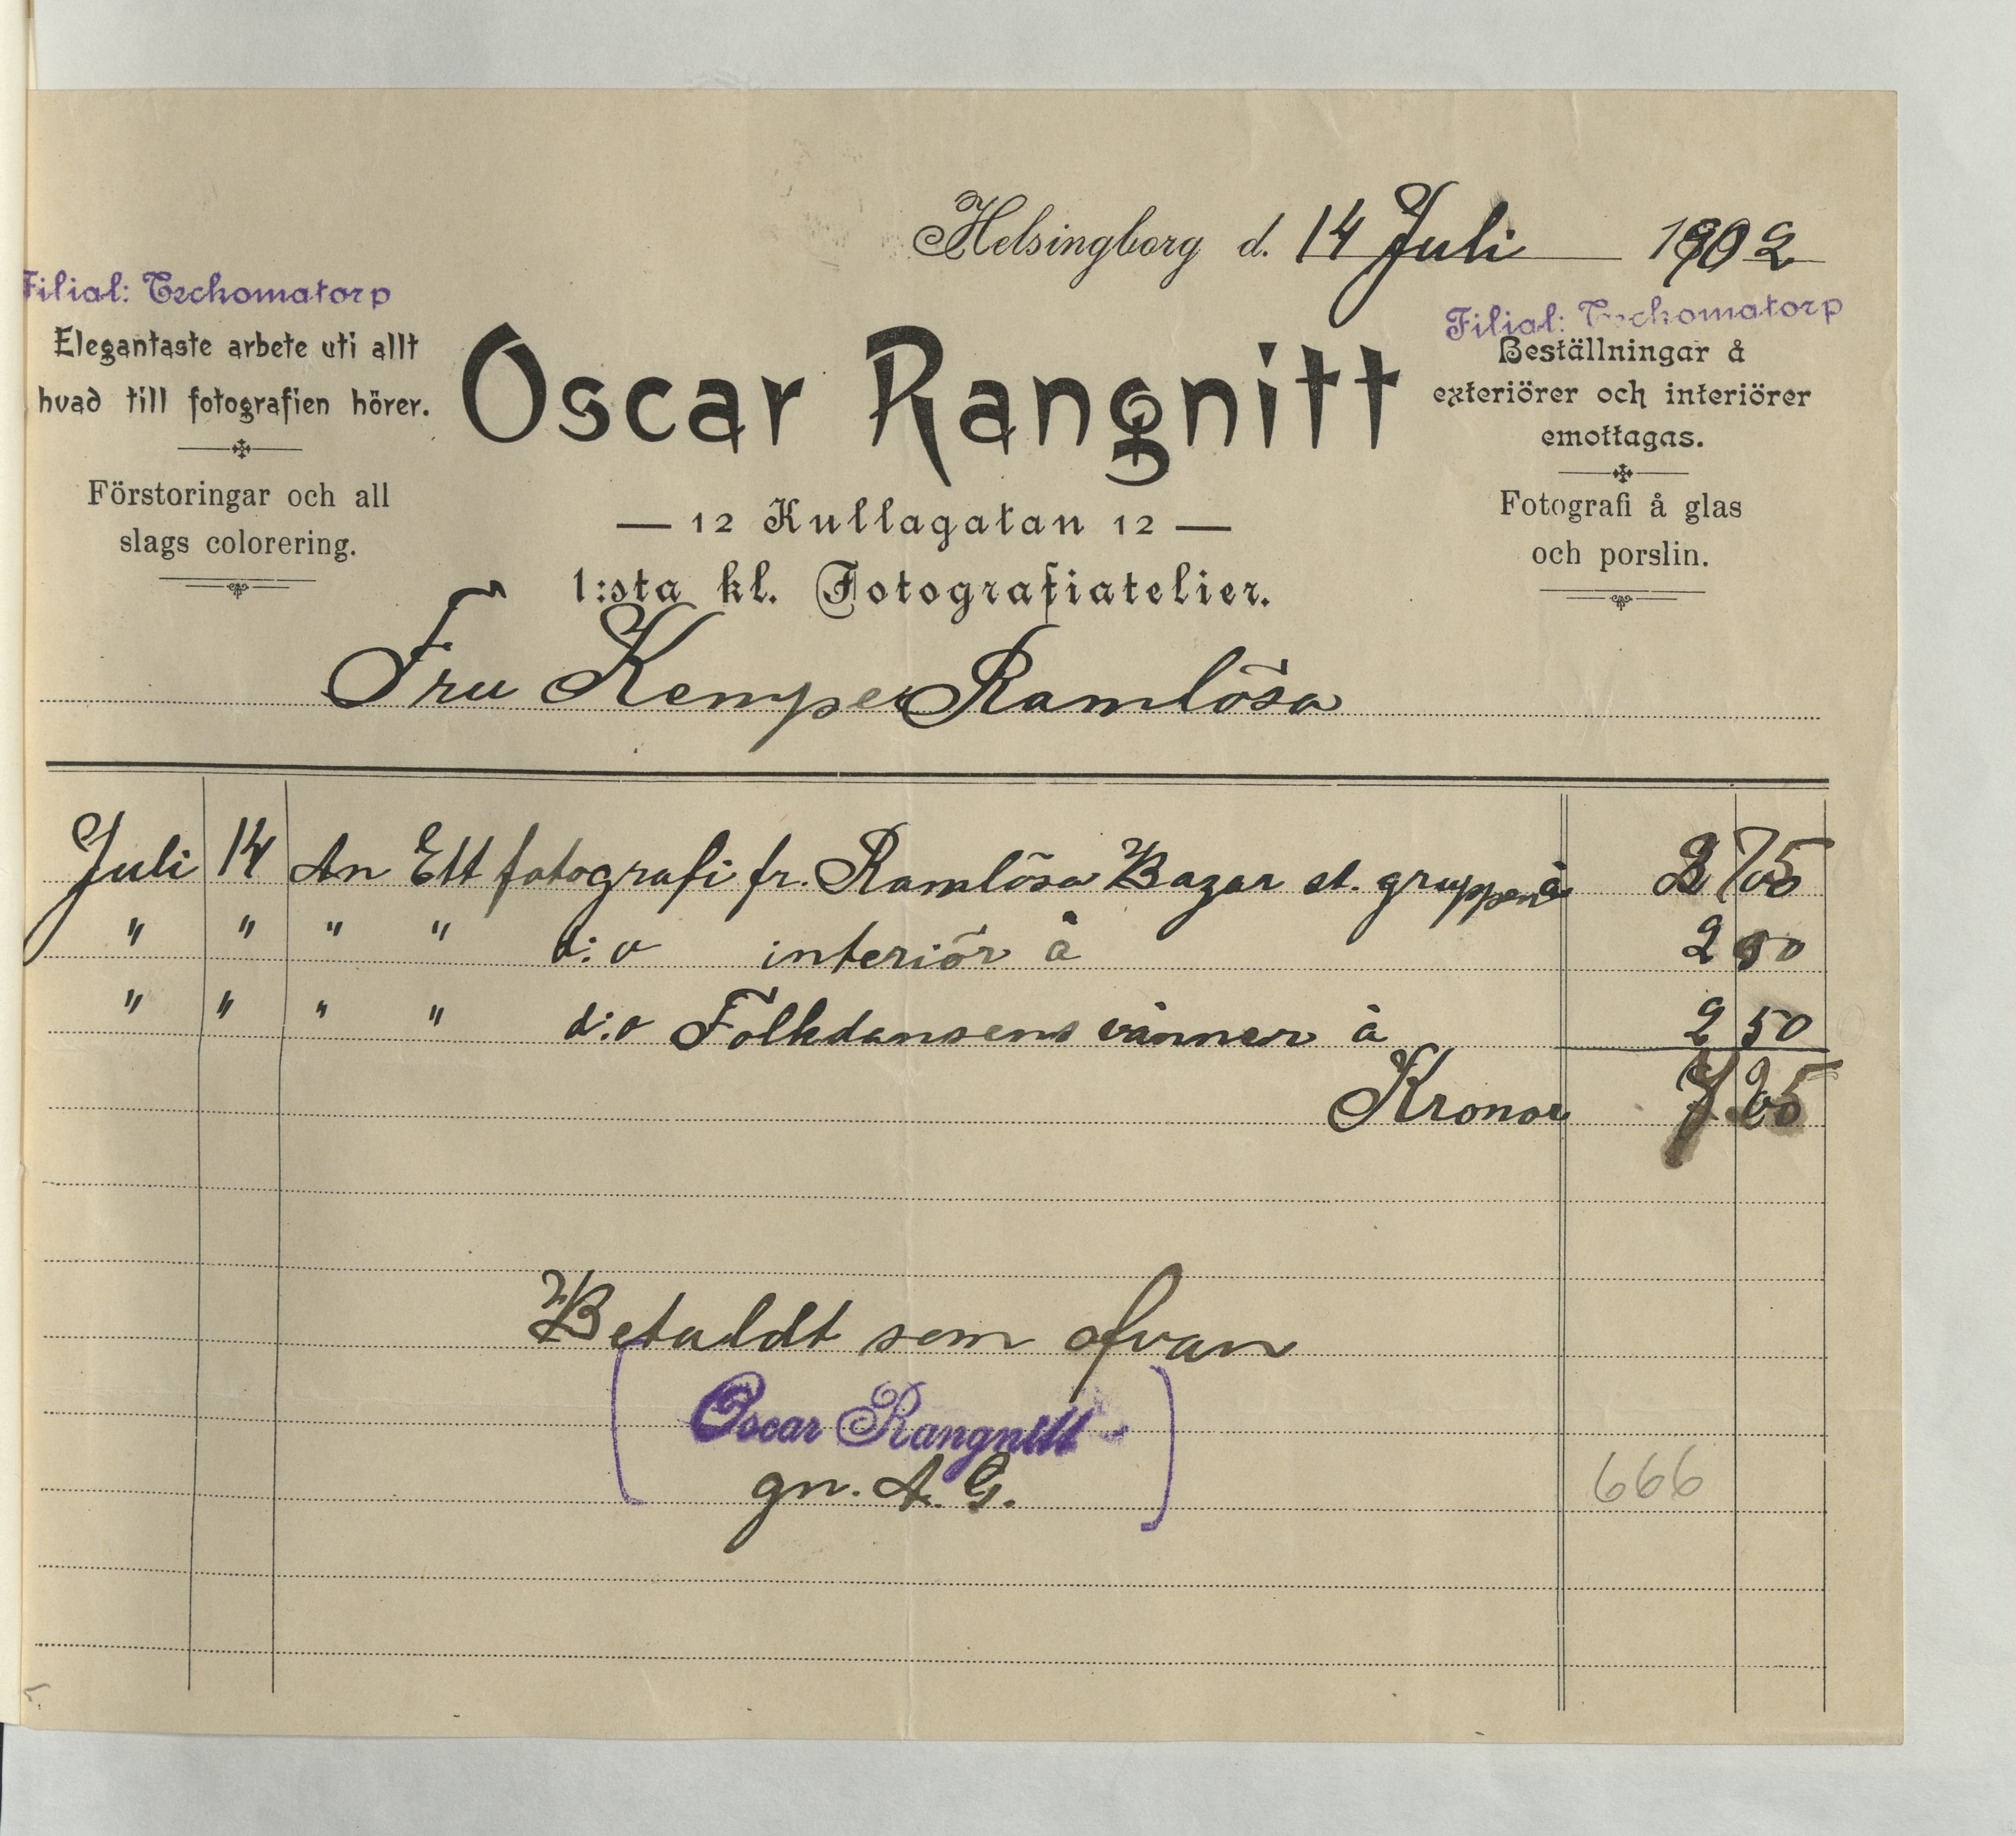 Helsingborg d. 14 Juli 1902
Filial: Teckomatorp
Elegantaste arbete uti allt
hvad till fotografien hörer.
Förstoringar och all
slags colorering.
Oscar Rangnitt
— 12 Kullagatan 12 —
1:sta kl. Fotografiatelier.
Filial: Teckomatorp
Beställningar å
exteriörer och interiörer
emottagas.
Fotografi å glas
och porslin.
Fru Kempe Ramlösa
Juli 14 An Ett fotografi fr. Ramlösa Bazar st. gruppen à 2 75
" " " " d:o interiör à 2 00
" " " " d:o Folkdansens vänner à 2 50
Kronor 7 25
Betaldt som ofvan
Oscar Rangnitt
gn. A. G.
666